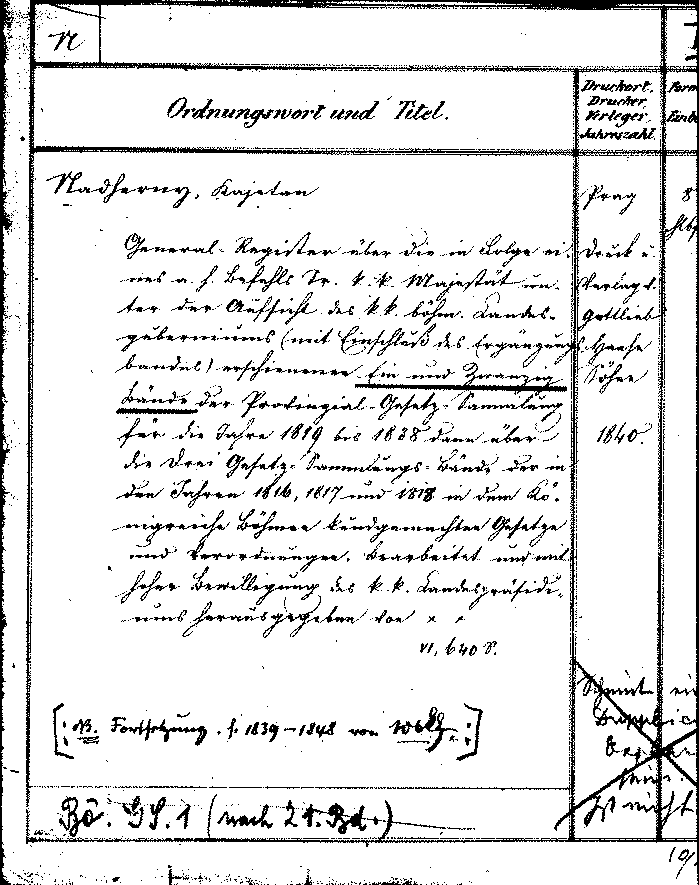 N
Ordnungswort und Titel.
Druckort.
Drucker.
Verleger.
Jahreszahl.
Form
Einb
Nadherny, Kajetan
General-Register über die in Folge ei-
nes a. h. Befehls Sr. k. k. Majestät un-
ter der Aufsicht des k k. böhm. Landes-
guberniums (mit Einschluß des Ergänzungs-
bandes) erschienenen Ein und Zwanzig
Bände der Provinzial-Gesetz-Sammlung
für die Jahre 1819 bis 1838 dann über
die drei Gesetz-Sammlungs-Bände der in
den Jahren 1816, 1817 und 1818 in dem Kö-
nigreiche Böhmen kundgemachten Gesetze
und Verordnungen. Bearbeitet und mit
hoher Bewilligung des k. k. Landespräsidi-
ums herausgegeben von " "
VI, 640 S.
Prag
Druck u.
Verlag d.
Gottlieb
Haase
Söhne
1840.
8
Hlbf
[: NB. Fortsetzung f. 1839-1848 von :]
Bö. GS. 1 (nach 21. Bd.)
Scheint ein
sein.
Ist nicht
10/